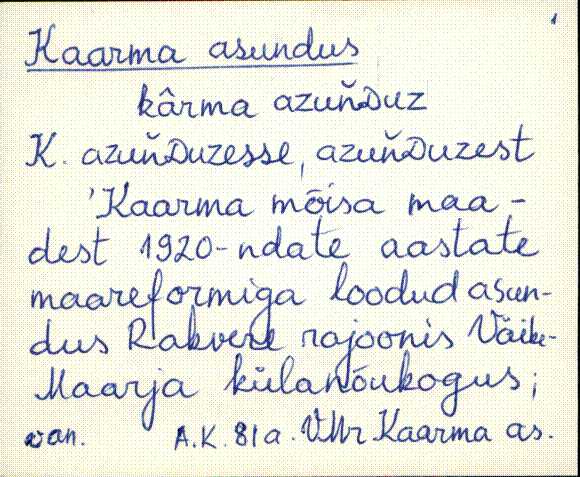 1
Kaarma asundus
kârma azuňᴅuz
K. azuňᴅuzesse, azuňᴅuzest
'Kaarma mõisa maa-
dest 1920-ndate aastate
maareformiga loodud asun-
dus Rakvere rajoonis Väike-
Maarja külanõukogus;
van. A.K. 81a. VMr Kaarma as.